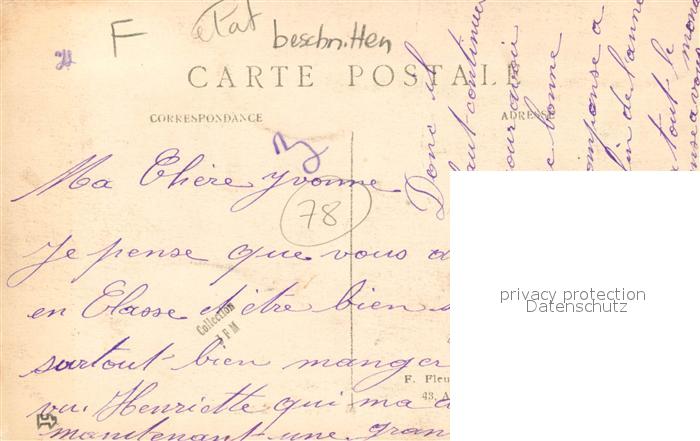 F état beschnitten
CARTE POSTALE
CORRESPONDANCE
ADRESSE
Ma Chère Yvonne
78
Je pense que vous a
en Classe d'être bien
surtout bien manger
vu Henriette qui ma a
maintenant une gran
Collection
JFM
F. Fleu
43, A
Donc il
faut continuer
pour avoir
bonne
fin de l'anné
tout le
privacy protection
Datenschutz